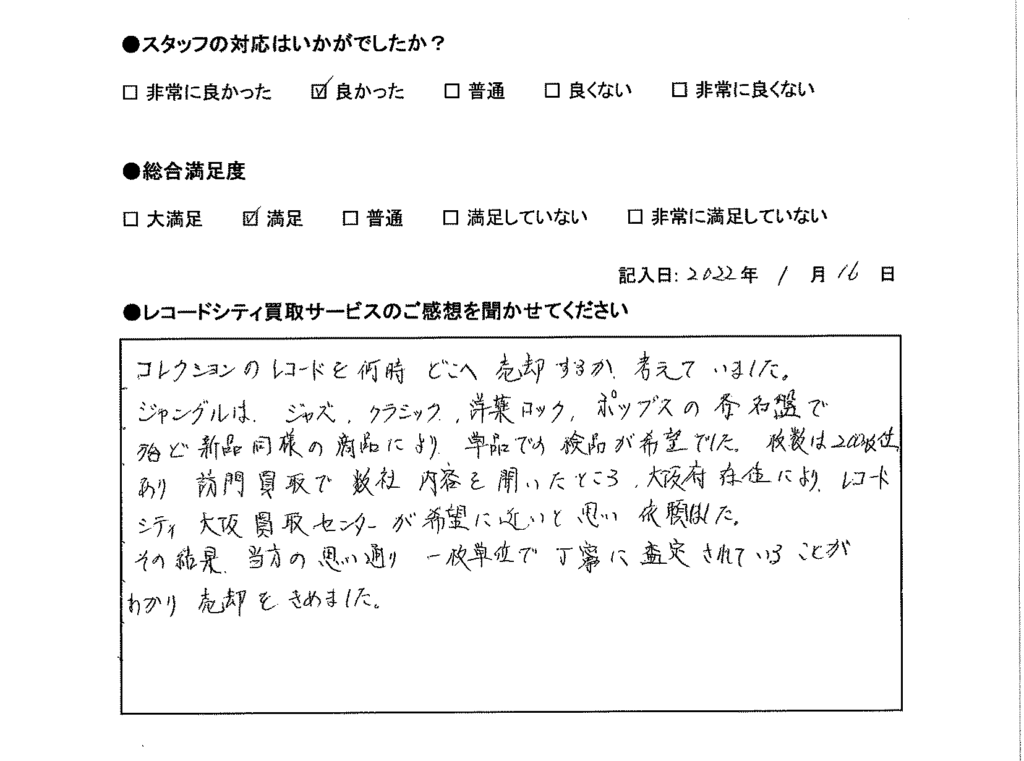 ●スタッフの対応はいかがでしたか？
□ 非常に良かった ☑ 良かった □ 普通 □ 良くない □ 非常に良くない
●総合満足度
□ 大満足 ☑ 満足 □ 普通 □ 満足していない □ 非常に満足していない
記入日: 2022年 1月 16日
●レコードシティ買取サービスのご感想を聞かせてください
コレクションのレコードを何時 どこへ 売却するか 考えて いました。
ジャングルは、ジャズ、クラシック、洋楽ロック、ポップスの 各名盤で
殆ど 新品同様の商品により、単品での 検品が希望でした。枚数は200枚位
あり 訪門買取で 数社 内容を聞いたところ、大阪府在住により、レコード
シティ 大阪買取センターが希望に近いと思い 依頼した。
その結果、当方の思い通り 一枚単位で丁寧に査定されていることが
わかり 売却をきめました。